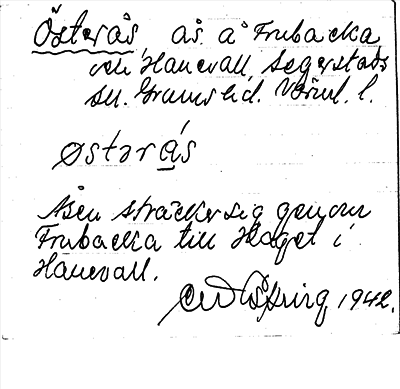 Österås, ås å Frubacka
och Hanevall, Segerstads
sn. Grums hd. Värml. l.
østərás
Åsen sträcker sig genom
Frubacka till Haget i
Hanevall.
1942.